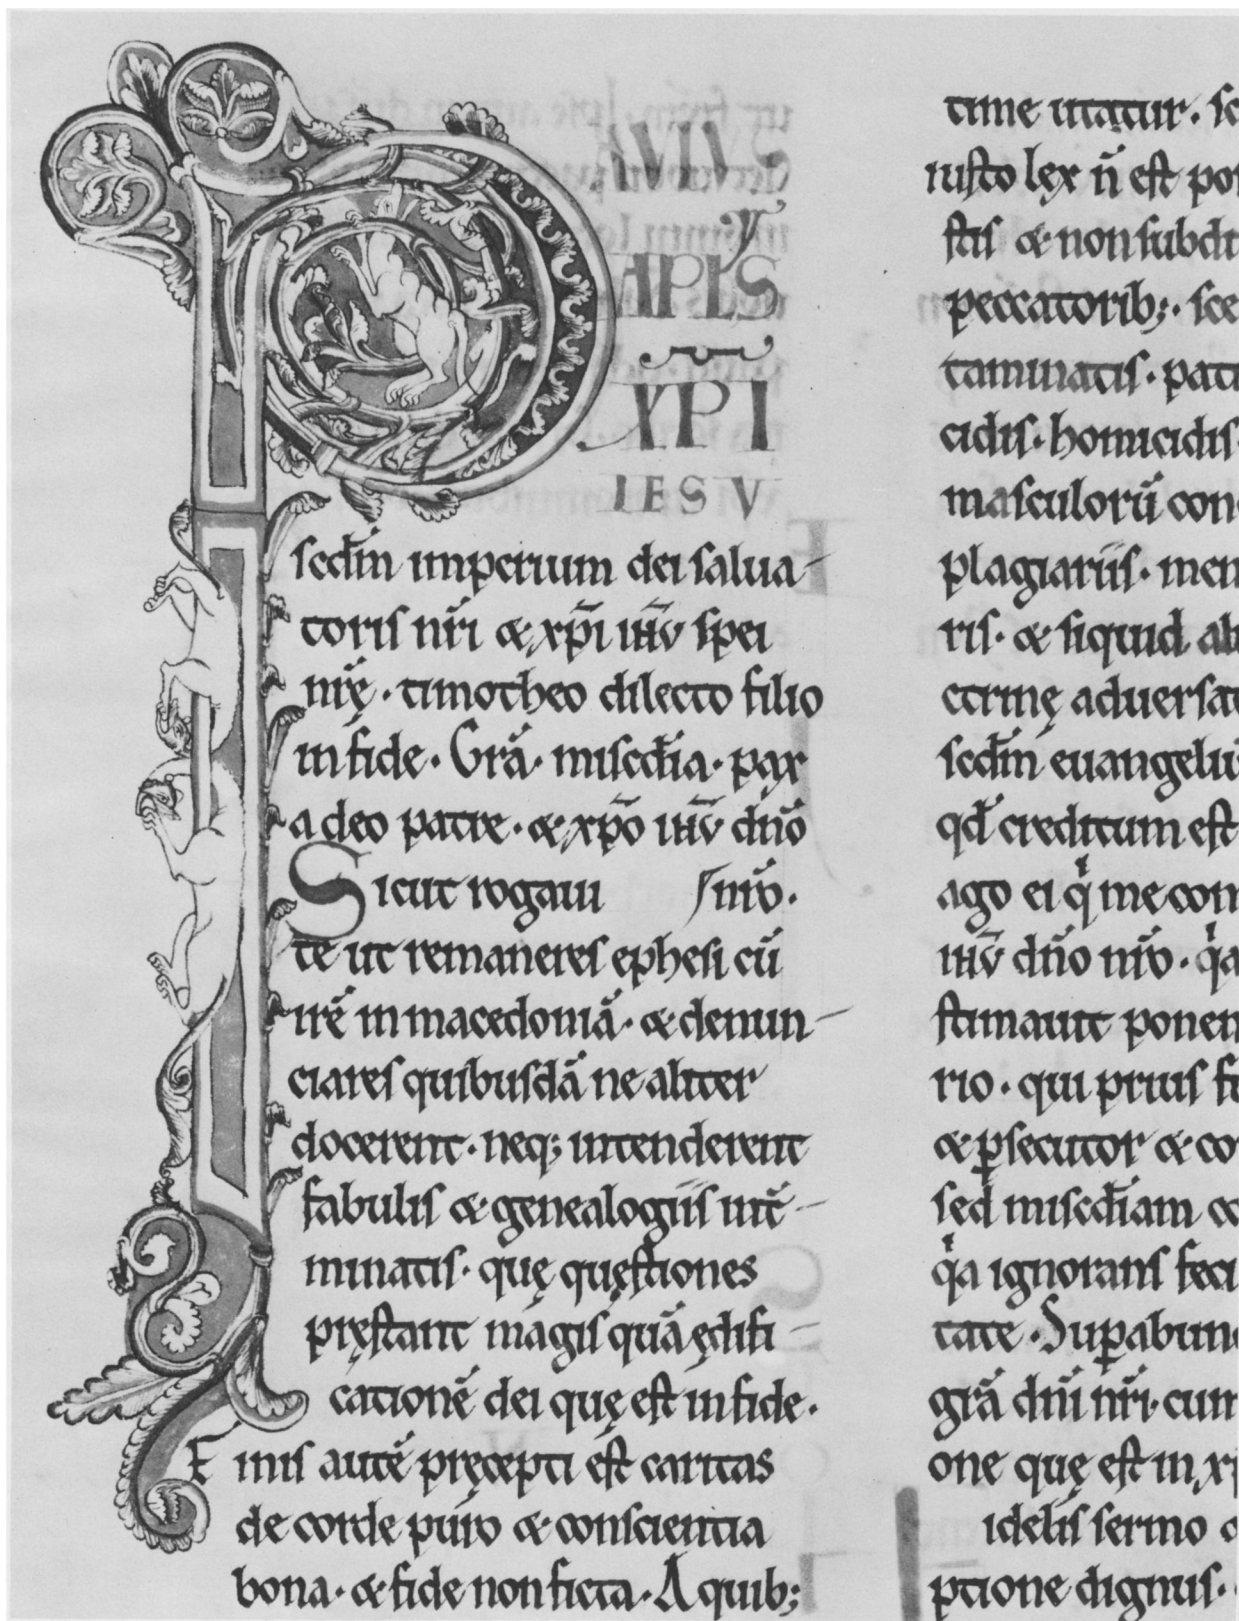 PAVLVS
APLS
XPI
IESV
scdm̄ imperium dei salua-
toris nr̄i & xp̄i ih̄v spei
nr̄ę · timotheo dilecto filio
in fide · Gr̄a · miscd̄ia · pax
a deo patre · & xp̄o ih̄v dn̄o
Sicut rogaui / nr̄o ·
te ut remaneres ephesi cū
irē in macedoniā · & denun-
ciares quibusdā ne aliter
docerent · neq; intenderent
fabulis & genealogiis int̄-
minatis · quę quęstiones
pręstant magis quā ędifi-
cationē dei quę est in fide ·
Finis autē pręcepti est caritas
de corde puro & conscientia
bona · & fide non ficta · A quib;
time utatur · sc
iusto lex n̄ est pos
stis & non subdit
peccatorib; · sce
taminatis · patr
cidis · homicidis ·
masculorū con
plagiariis · men
ris · & siquid al
ctrinę aduersat
scdm̄ euangeliū
qd̄ creditum est
ago ei qi me con
ih̄v dn̄o nr̄o · qia
stimauit ponen
rio · qui prius f
& psecutor & co
sed miscd̄iam
qia ignorans feci
tate · Supabun
gr̄a dn̄i nr̄i · cum
one quę est in x
idelis sermo
ptione dignus ·